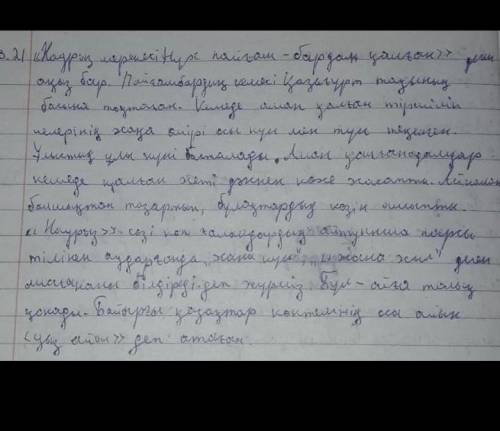 3.21 «Наурыз мерекесі Нұх пайғам-бардан қалған» деген
аңыз бар. Пайғамбардың кемесі Қазығұрт тауының
басына тоқтаған. Кемеде аман қалған тіршілік
иелерінің жаңа өмірі осы күн мен түн теңелген
Ұлыстың ұлы күні басталады. Аман қалған адамдар
кемеде қалған жеті дәннен көже жасапты. Айналаны
балшықтан тазартып, бұлақтардың көзін ашыпты.
«Наурыз» сөзі көп ғалымдардың айтуынша парсы
тілінен аударғанда жаңа күн", "жаңа жыл" деген
мағынаны білдіреді деп жүрміз Бұл-айға
қонады. Байырғы қазақтар көктемнің осы айын
«ұыз айы» деп атаған